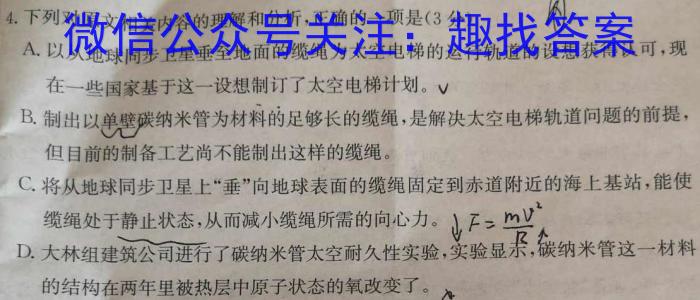 4.下列对原文相关内容的理解和分析,正确的一项是(3分
微信公众号关注:趣找答案
A.以从地球同步卫星垂至地面的缆绳为太空电梯的运行轨道的设想获得认可,现
在一些国家基于这一设想制订了太空电梯计划。
B.制出以单壁碳纳米管为材料的足够长的缆绳,是解决太空电梯轨道问题的前提,
但目前的制备工艺尚不能制出这样的缆绳。
C.将从地球同步卫星上“垂”向地球表面的缆绳固定到赤道附近的海上基站,能使
缆绳处于静止状态,从而减小缆绳所需的向心力。↓F=mv²/R↑
D.大林组建筑公司进行了碳纳米管太空耐久性实验,实验显示,碳纳米管这一材料
的结构在两年里被热层中原子状态的氧改变了。